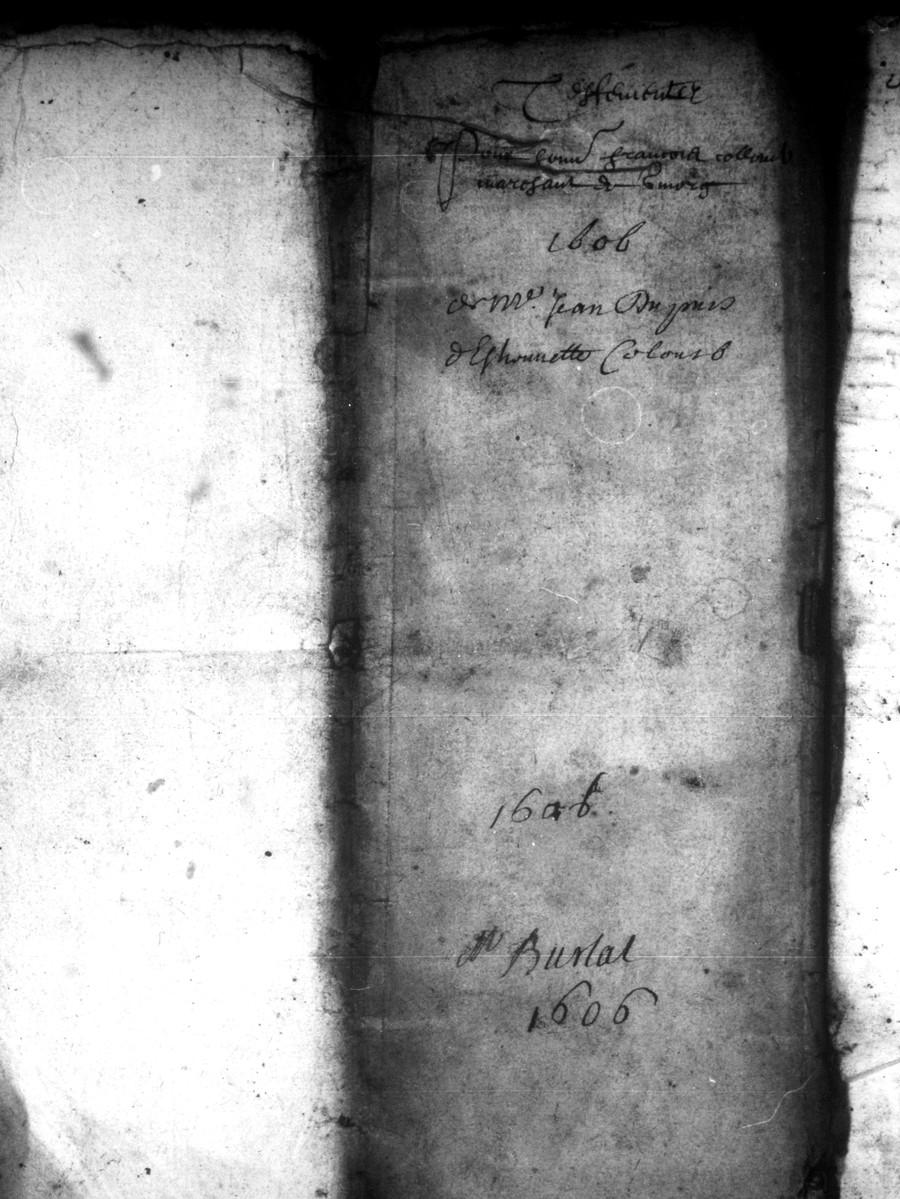 Testemente
Pour francois collomb
marchant de
1606
de Mr. Jean Dupuis
d'Esthounette Colomb
1606.
Mr Burlat
1606